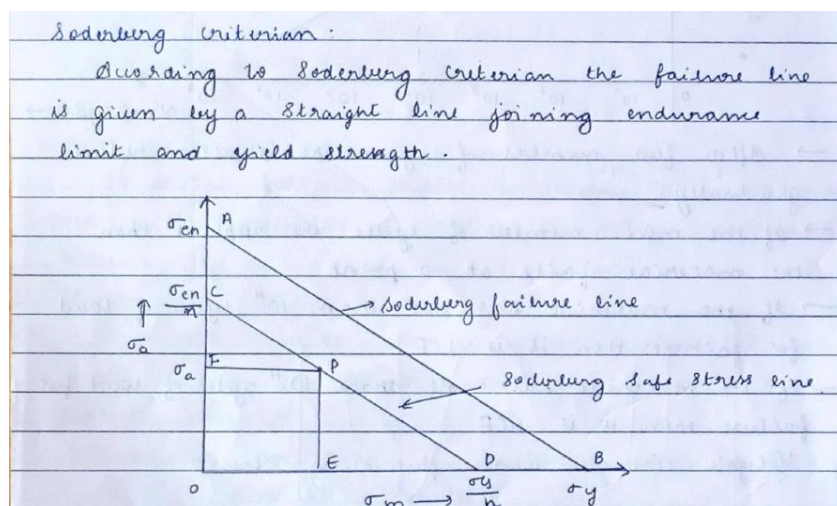 Soderberg Criterian :
According to Soderberg Criterian the failure line
is given by a straight line joining endurance
limit and yield strength.
σen A
σen/n C
↑ σa
→ Soderberg failure line
σa F P
Soderberg safe stress line.
O E D B
σm → σy/n σy